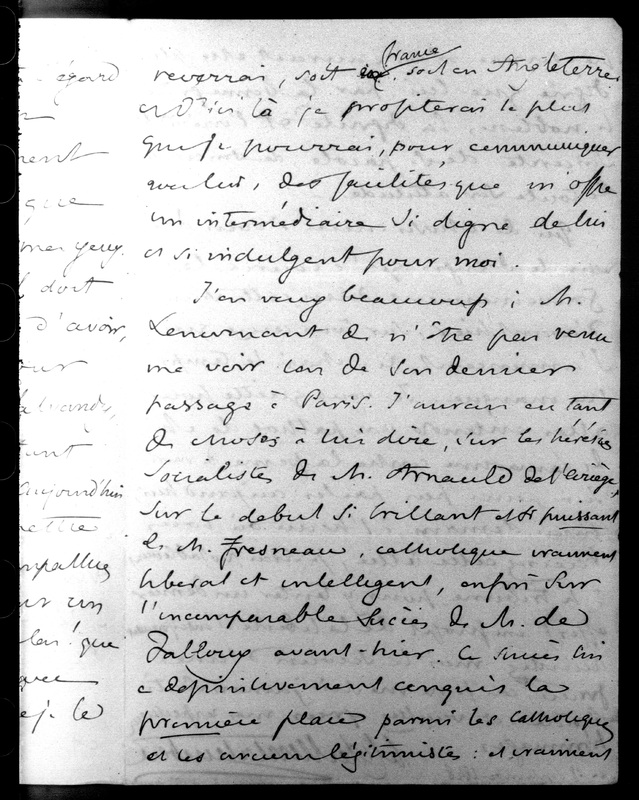 égard
ment
que
mes yeux
doit
d'avoir,
our
tant
aujourd'hui
mettre
un
que
je le
france
reverrai, soit en, soit en Angleterre
et d'ici là je profiterai le plus
que je pourrai, pour communiquer
avec lui, des facilités que m'offre
un intermédiaire si digne de lui
et si indulgent pour moi.
J'en veux beaucoup à M.
Lenormant de n'être pas venu
me voir lors de son dernier
passage à Paris. J'aurais eu tant
de choses à lui dire, sur les hérésies
socialistes de M. Arnauld de l'Ariège,
sur le debut si brillant et si puissant
de M. Fresneau, catholique vraiment
liberal et intelligent, enfin sur
l'incomparable succès de M. de
Falloux avant-hier. Ce succès lui
a définitivement conquis la
première place parmi les catholiques
et les anciens légitimistes : et vraiment